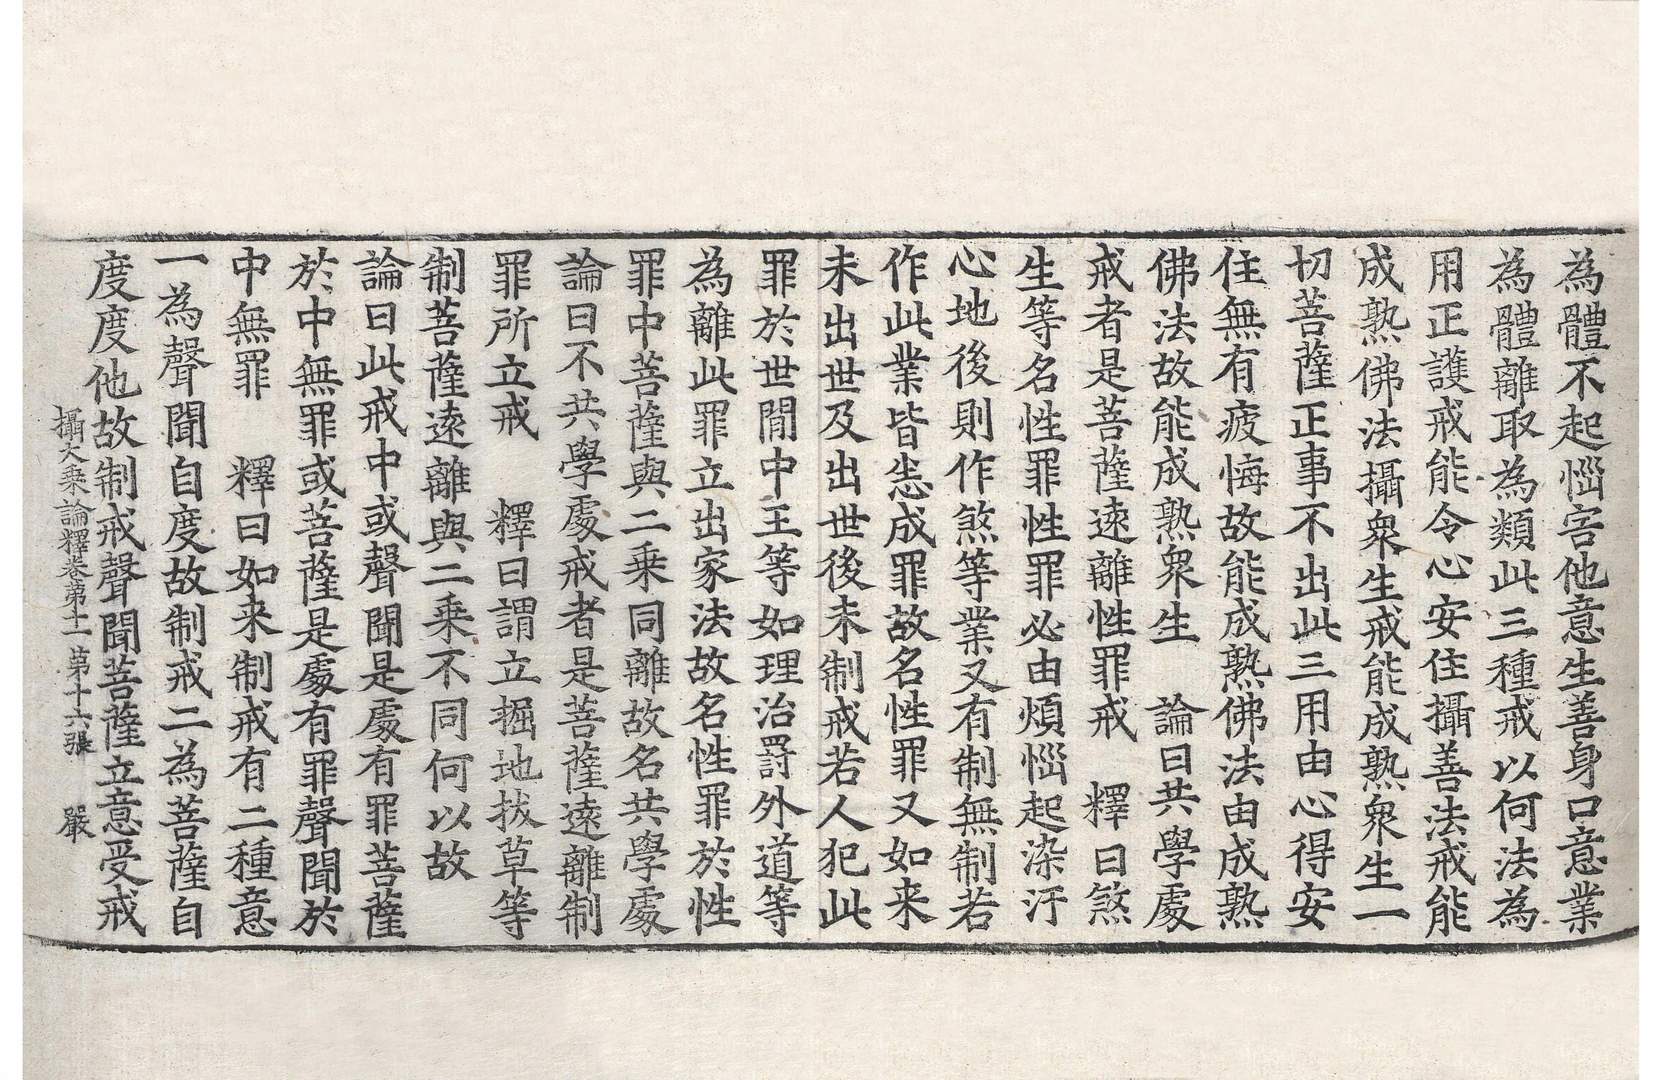 為體不起惱害他意生善身口意業
為體離取為為類此三種戒以何法為
用正護戒能令心安住攝善法戒能
成熟佛法攝衆生戒能成熟衆生一
切菩薩正事不出此三用由心得安
住無有疲悔故能成熟佛法由成熟
佛法故能成熟衆生　論曰共學處
戒者是菩薩遠離性罪戒　釋曰煞
生等名性罪性罪必由煩惱起染汙
心地後則作煞等業又有制無制若
作此業皆悉成罪故名性罪又如来
未出世及出世後未制戒若人犯此
罪於世間中王等如理治罸外道等
為離此罪立出家法故名性罪於性
罪中菩薩與二乘同離故名共學處
論曰不共學處戒者是菩薩遠離制
罪所立戒　釋曰謂立掘地拔草等
制菩薩遠離與二乘不同何以故
論曰此戒中或聲聞是處有罪菩薩
於中無罪或菩薩是處有罪聲聞於
中無罪　釋曰如来制戒有二種意
一為聲聞自度故制戒二為菩薩自
度度他故制戒聲聞菩薩立意受戒
攝大乘論釋卷第十一　第十六張　嚴